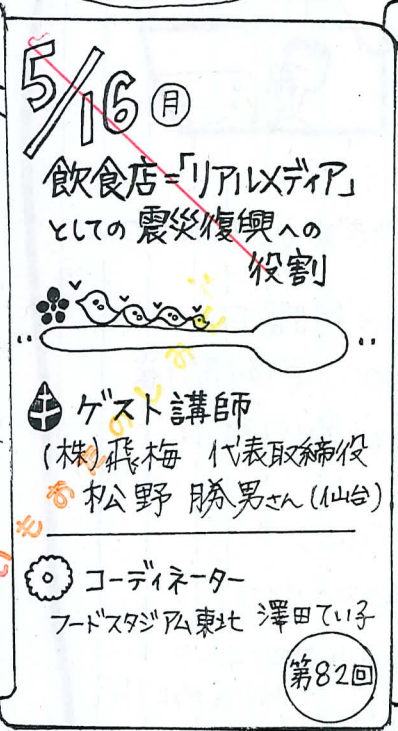 5/16 月
飲食店=「リアルメディア」
としての 震災復興への
役割
ゲスト講師
(株)飛梅 代表取締役
松野 勝男さん(仙台)
コーディネーター
フードスタジアム東北 澤田てい子
第82回